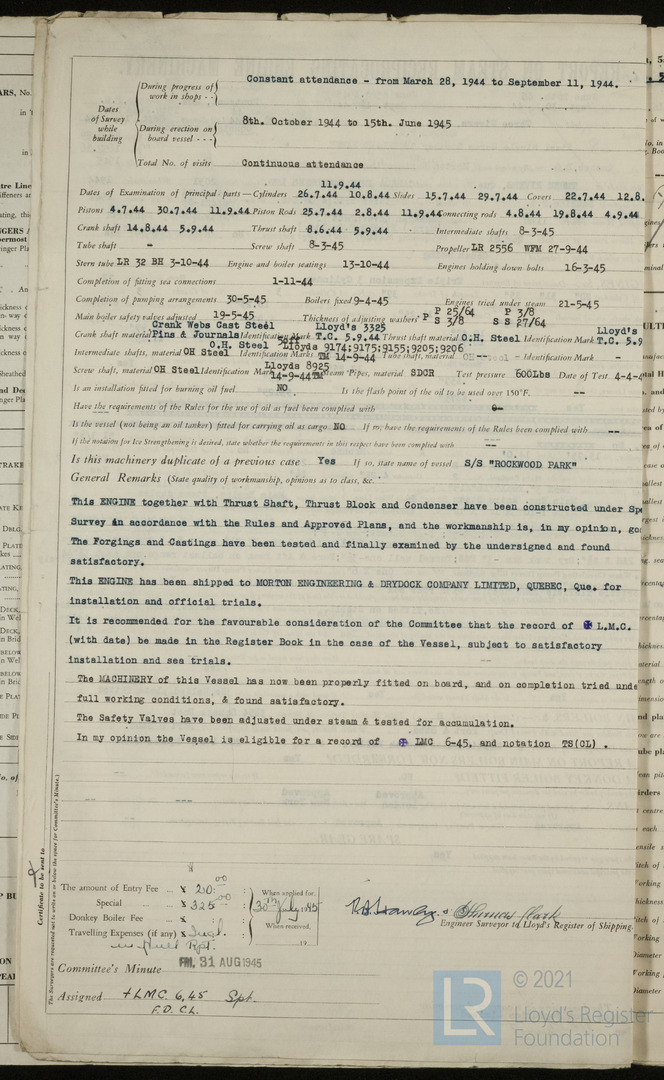 During progress of work in shops - - Constant attendance - from March 28, 1944 to September 11, 1944.
Dates of Survey while building
During erection on board vessel - - - 8th. October 1944 to 15th. June 1945
Total No. of visits Continuous attendance
11.9.44
Dates of Examination of principal parts—Cylinders 26.7.44 10.8.44 Slides 15.7.44 29.7.44 Covers 22.7.44 12.8.
Pistons 4.7.44 30.7.44 11.9.44 Piston Rods 25.7.44 2.8.44 11.9.44 Connecting rods 4.8.44 19.8.44 4.9.44
Crank shaft 14.8.44 5.9.44 Thrust shaft 8.6.44 5.9.44 Intermediate shafts 8-3-45
Tube shaft - Screw shaft 8-3-45 Propeller LR 2556 WFM 27-9-44
Stern tube LR 32 BH 3-10-44 Engine and boiler seatings 13-10-44 Engines holding down bolts 16-3-45
Completion of fitting sea connections 1-11-44
Completion of pumping arrangements 30-5-45 Boilers fixed 9-4-45 Engines tried under steam 21-5-45
Main boiler safety valves adjusted 19-5-45 Thickness of adjusting washers P P 25/64 P 3/8
S 3/8 S S 27/64
Crank Webs Cast Steel Lloyd's 3325 Lloyd's
Crank shaft material Pins & Journals Identification Mark T.C. 5.9.44 Thrust shaft material O.H. Steel Identification Mark T.C. 5.9
O.H. Steel Lloyds 9174;9175;9155;9205;9206
Intermediate shafts, material OH Steel Identification Marks TM 14-9-44 Tube shaft, material Identification Mark -
Lloyds 8925
Screw shaft, material OH Steel Identification Mark 14-9-44 TM Steam Pipes, material SDCR Test pressure 600Lbs Date of Test 4-4-4
Is an installation fitted for burning oil fuel NO Is the flash point of the oil to be used over 150°F. --
Have the requirements of the Rules for the use of oil as fuel been complied with
Is the vessel (not being an oil tanker) fitted for carrying oil as cargo NO If so, have the requirements of the Rules been complied with --
If the notation for Ice Strengthening is desired, state whether the requirements in this respect have been complied with --
Is this machinery duplicate of a previous case Yes If so, state name of vessel S/S "ROCKWOOD PARK"
General Remarks (State quality of workmanship, opinions as to class, &c.
This ENGINE together with Thrust Shaft, Thrust Block and Condenser have been constructed under Spe
Survey in accordance with the Rules and Approved Plans, and the workmanship is, in my opinion, go
The Forgings and Castings have been tested and finally examined by the undersigned and found
satisfactory.
This ENGINE has been shipped to MORTON ENGINEERING & DRYDOCK COMPANY LIMITED, QUEBEC, Que. for
installation and official trials.
It is recommended for the favourable consideration of the Committee that the record of ✠ L.M.C.
(with date) be made in the Register Book in the case of the Vessel, subject to satisfactory
installation and sea trials.
The MACHINERY of this Vessel has now been properly fitted on board, and on completion tried unde
full working conditions, & found satisfactory.
The Safety Valves have been adjusted under steam & tested for accumulation.
In my opinion the Vessel is eligible for a record of ✠ LMC 6-45, and notation TS(CL) .
Certificate to be sent to
(The Surveyors are requested not to write on or below the space for Committee's Minute.)
The amount of Entry Fee ... $ 20.00 When applied for,
Special ... $ 325.00 30th July 1945
Donkey Boiler Fee ... When received,
Travelling Expenses (if any) $ 19
Engineer Surveyor to Lloyd's Register of Shipping.
Committee's Minute FRI. 31 AUG 1945
Assigned +LMC 6,45 Spt.
F.D. CL.
LR © 2021
Lloyd's Register
Foundation